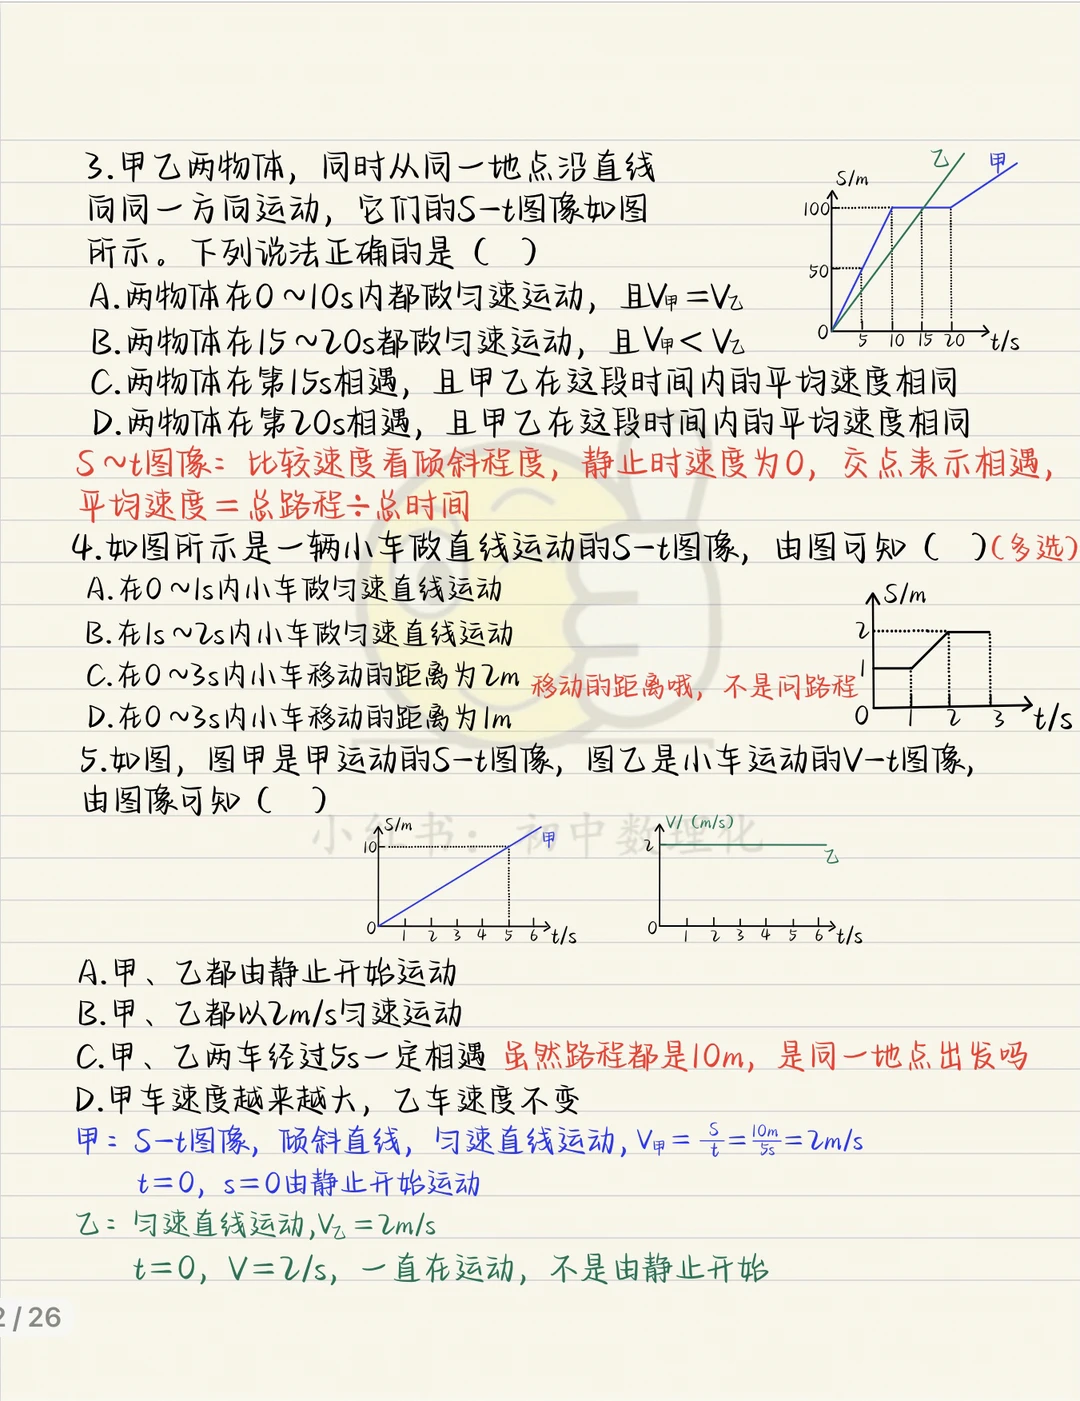 3.甲乙两物体，同时从同一地点沿直线
向同一方向运动，它们的S-t图像如图
所示。下列说法正确的是（ ）
A.两物体在0~10s内都做匀速运动，且V甲=V乙
B.两物体在15~20s都做匀速运动，且V甲<V乙
C.两物体在第15s相遇，且甲乙在这段时间内的平均速度相同
D.两物体在第20s相遇，且甲乙在这段时间内的平均速度相同
S/m
乙 甲
100
50
0 5 10 15 20 t/s
S~t图像：比较速度看倾斜程度，静止时速度为0，交点表示相遇，
平均速度=总路程÷总时间
4.如图所示是一辆小车做直线运动的S-t图像，由图可知（ ）(多选)
A.在0~1s内小车做匀速直线运动
B.在1s~2s内小车做匀速直线运动
C.在0~3s内小车移动的距离为2m 移动的距离哦，不是问路程
D.在0~3s内小车移动的距离为1m
S/m
2
1
0 1 2 3 t/s
5.如图，图甲是甲运动的S-t图像，图乙是小车运动的V-t图像，
由图像可知（ ）
小红书：初中数理化
S/m
10
甲
0 1 2 3 4 5 6 t/s
V/(m/s)
2
乙
0 1 2 3 4 5 6 t/s
A.甲、乙都由静止开始运动
B.甲、乙都以2m/s匀速运动
C.甲、乙两车经过5s一定相遇 虽然路程都是10m，是同一地点出发吗
D.甲车速度越来越大，乙车速度不变
甲：S-t图像，倾斜直线，匀速直线运动，V甲=S/t=10m/5s=2m/s
t=0，s=0由静止开始运动
乙：匀速直线运动，V乙=2m/s
t=0，V=2/s，一直在运动，不是由静止开始
2/26